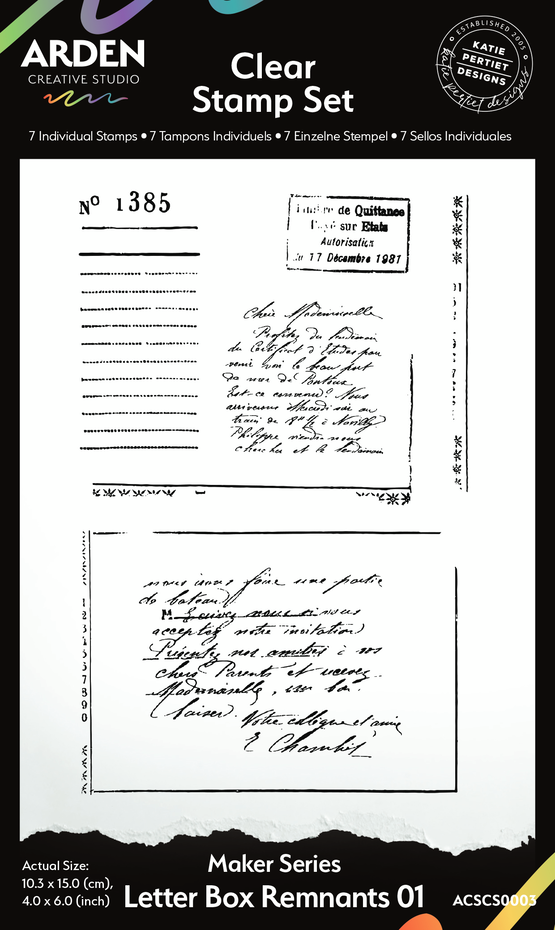 ARDEN
CREATIVE STUDIO
Clear
Stamp Set
ESTABLISHED 2005
KATIE
PERTIET
DESIGNS
katie pertiet designs
7 Individual Stamps • 7 Tampons Individuels • 7 Einzelne Stempel • 7 Sellos Individuales
Nº 1385
de Quittance
sur Etats
Autorisation
17 Décembre 1981
Chère Mademoiselle
Profitez du lendemain
du Certificat d'Etudes pour
venir voir le beau port
de mer de
Est-ce convenu? Nous
arriverons Mercredi soir au
train de 8h 1/2 à
Philippe viendra nous
chercher et le lendemain
nous irons faire une partie
de bateau
M. Ecrivez nous si vous
acceptez notre invitation
Présentez nos amitiés à vos
chers Parents et recevez
Mademoiselle, un bon
baiser.
Votre collègue et amie
E
1
2
3
4
5
6
7
8
9
0
Actual Size:
10.3 x 15.0 (cm),
4.0 x 6.0 (inch)
Maker Series
Letter Box Remnants 01
ACSCS0003